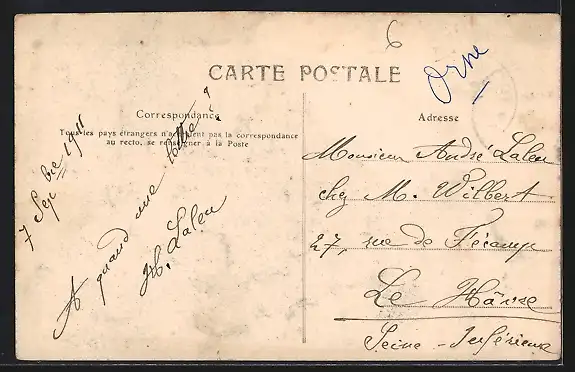 6
Orne
CARTE POSTALE
Correspondance
Tous les pays étrangers n'acceptent pas la correspondance
au recto, se renseigner à la Poste
Adresse
7 Sepbre 1911
A quand une lettre?
H. Laleu
Monsieur André Laleu
chez M. Wilbert
27, rue de Fécamp
Le Hâvre
Seine-Inférieure